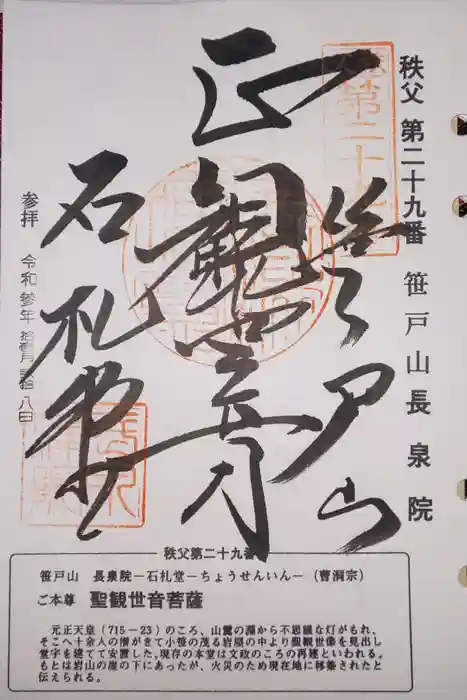 秩父 第二十九番 笹戸山長泉院
笹戸山
正観世音
石札堂
参拝 令和參年 拾
八日
秩父第二十九番
笹戸山 長泉院−石札堂−ちょうせんいん−(曹洞宗)
ご本尊 聖観世音菩薩
元正天皇(715−23)のころ、山麓の淵から不思議な灯がもれ、
そこへ十余人の僧がきて小笹の茂る岩屋の中より聖観世像を見出し
堂宇を建てて安置した。現存の本堂は文政のころの再建といわれる。
もとは岩山の崖の下にあったが、火災のため現在地に移築されたと
伝えられる。